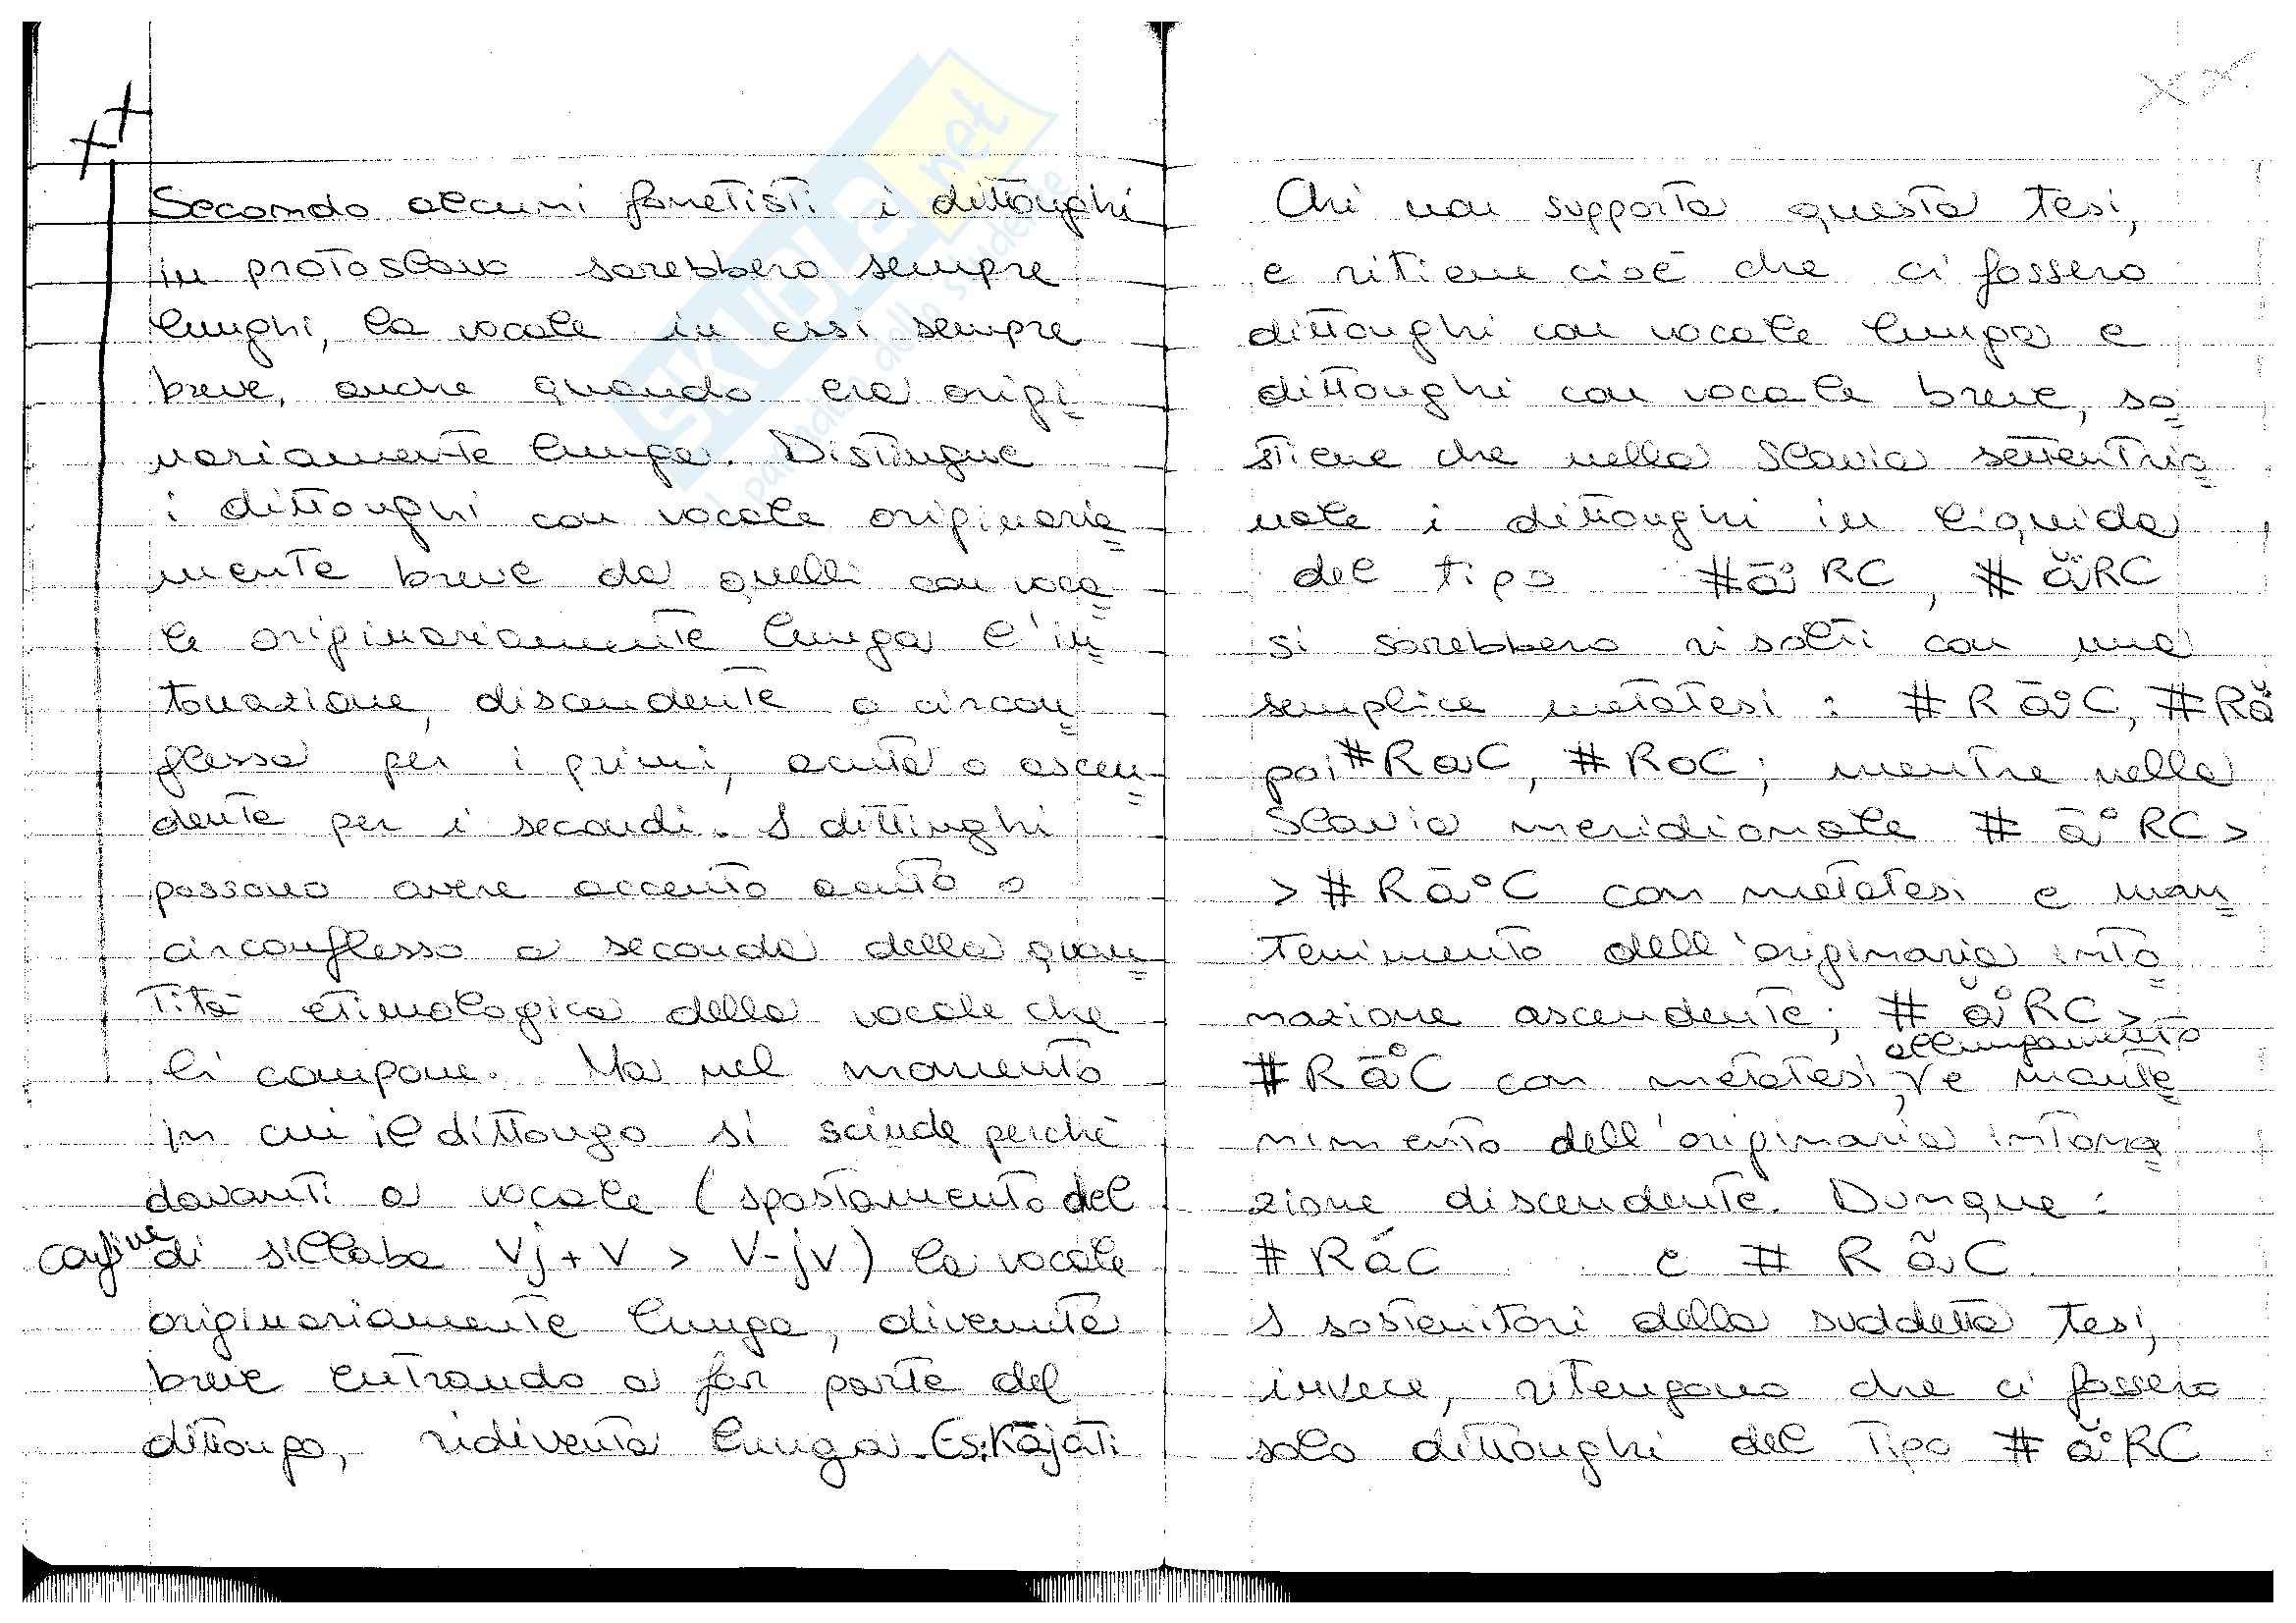 Secondo alcuni fonetisti i dittonghi
in protoslavo sarebbero sempre
lunghi, la vocale in essi sempre
breve, anche quando era origi=
nariamente lunga. Distingue
i dittonghi con vocale originaria=
mente breve da quelli con voca=
le originariamente lunga l'in=
tonazione, discendente o circon=
flessa per i primi, acuta o ascen=
dente per i secondi. I dittinghi
possono avere accento acuto o
circonflesso a seconda della quan=
tità etimologica della vocale che
li compone. Ma nel momento
in cui il dittongo si scinde perché
davanti a vocale (spostamento del
confine di sillaba Vj+V > V-jV) la vocale
originariamente lunga, divenuta
breve entrando a far parte del
dittongo, ridiventa lunga. Es: Kājati
Chi non supporta questa tesi,
e ritiene cioè che ci fossero
dittonghi con vocale lunga e
dittonghi con vocale breve, so=
stiene che nella Slavia settentrio=
nale i dittonghi in liquida
del tipo #ā°RC, #ă°RC
si sarebbero risolti con una
semplice metatesi: #Rā°C, #Ră
poi #RaC, #RoC; mentre nella
Slavia meridionale #ā°RC >
> #Rā°C con metatesi e man=
tenimento dell'originaria into=
nazione ascendente; #ă°RC >
#Rā°C con metatesi, allungamento e mante=
nimento dell'originaria intona=
zione discendente. Dunque:
#RáC e #RãC
I sostenitori della suddetta tesi,
invece, ritengono che ci fossero
solo dittonghi del tipo #ă°RC
SKUOLA.net